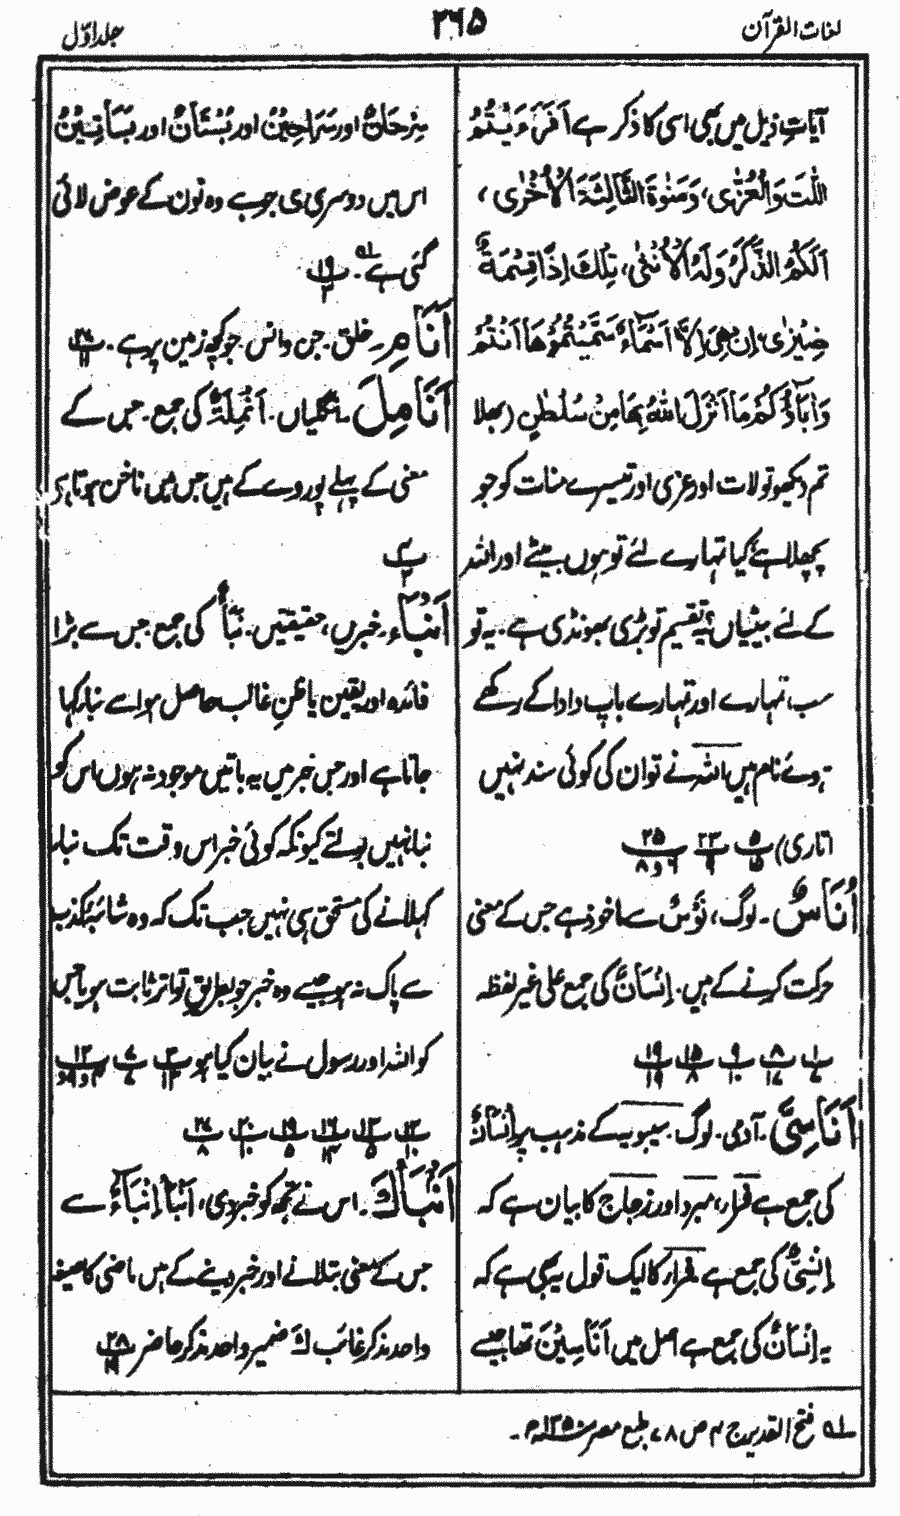 لغات القرآن
۲۶۵
جلد اوّل
آیاتِ ذیل میں بھی اسی کا ذکر ہے اَفَرَءَیْتُمُ
اللّٰتَ وَالْعُزّٰی، وَمَنٰوةَ الثَّالِثَةَ الْاُخْرٰی ،
اَلَكُمُ الذَّكَرُ وَلَهُ الْاُنْثٰی، تِلْكَ اِذًا قِسْمَةٌ
ضِیْزٰی، اِنْ هِیَ اِلَّا اَسْمَآءٌ سَمَّیْتُمُوْهَا اَنْتُمْ
وَاٰبَآؤُكُمْ مَا اَنْزَلَ اللهُ بِهَا مِنْ سُلْطٰنٍ (بھلا
تم دیکھو تو لات اور عزی اور تیسرے منات کو جو
پچھلا ہے؛ کیا تمہارے لئے تو ہوں بیٹے اور اللہ
کے لئے بیٹیاں؟ یہ تقسیم تو بڑی بھونڈی ہے۔ یہ تو
سب تمہارے اور تمہارے باپ دادا کے رکھے
ہوئے نام ہیں، اللہ نے تو ان کی کوئی سند نہیں
اتاری) پ ۵/۱۵ ۲۳/۹ ۲۵/۶ و ۸
اُنَاسٌ۔ لوگ، نَوْسٌ سے ماخوذ ہے جس کے معنی
حرکت کرنے کے ہیں۔ اِنْسَانٌ کی جمع علی غیر لفظہ
۱/۷ ۸/۱۷ ۹/۱۰ ۱۵/۸ ۱۹/۱۹
اَنَاسِیَّ۔ آدمی۔ لوگ۔ سیبویہ کے مذہب پر اِنْسَانٌ
کی جمع ہے فرّاء، مبرد اور زجاج کا بیان ہے کہ
اِنْسِیٌّ کی جمع ہے فرّاء کا ایک قول یہ بھی ہے کہ
یہ اِنْسَانٌ کی جمع ہے اصل میں اَنَاسِیْنَ تھا جیسے
سِرْحَانٌ اور سَرَاحِیْنُ اور بُسْتَانٌ اور بَسَاتِیْنُ
اس میں دوسری ی جو ہے وہ نون کے عوض لائی
گئی ہے۔ لہ ۱۹/۳
اَنَامِ۔ خلق۔ جن و انس۔ جو کچھ زمین پر ہے۔ ۲۷/۱۱
اَنَامِلَ۔ انگلیاں۔ اَنْمِلَةٌ کی جمع۔ جس کے
معنی کے پہلے پورے کے ہیں جس میں ناخن ہوتا ہے
پ ۴/۳
اَنْۢبَآءِ۔ خبریں، حقیقتیں۔ نَبَأٌ کی جمع جس سے بڑا
فائدہ اور یقین یا ظن غالب حاصل ہو اسے نبا کہا
جاتا ہے اور جس خبر میں یہ باتیں موجود نہ ہوں اس کو
نبا نہیں بولتے کیونکہ کوئی خبر اس وقت تک نبا
کہلانے کی مستحق ہی نہیں جب تک کہ وہ شائبۂ کذب
سے پاک نہ ہو جیسے وہ خبر جو بطریق تواتر ثابت ہو یا جس
کو اللہ اور رسول نے بیان کیا ہو ۳/۱۳ ۷/۷ ۱۲/۴ و ۹ و
۱۲/۱۰ ۱۳/۵ ۱۶/۱۴ ۱۹/۵ ۲۰/۱۰ ۲۷/۸
اَنْۢبَاَكَ۔ اس نے تجھ کو خبر دی، اَنْۢبَأَ اِنْۢبَآءٌ سے
جس کے معنی بتلانے اور خبر دینے کے ہیں ماضی کا صیغہ
واحد مذکر غائب كَ ضمیر واحد مذکر حاضر ۲۸/۱۹
لہ فتح القدیر ج ۴ ص ۷۸ طبع مصر ۱۳۵۰ھ۔